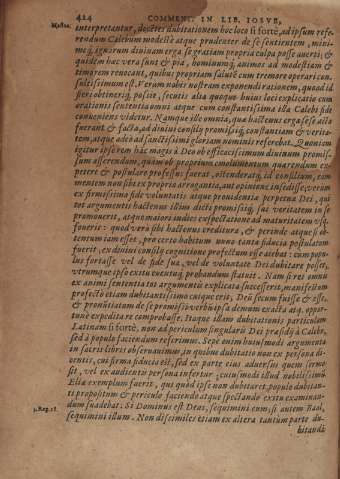 424 COMMENT. IN LIB. IOSVE,
Masius.
interpretantur, docétes dubitationem hoc loco si forte, ad ipsum refe-
rendum Calebum modestè atque prudenter de se sentientem, mini-
meq́; ignarum diuinam erga se gratiam propria culpa posse auerti; &
quidem hæc vera sunt & pia, hominumq́; animos ad modestiam &
timorem reuocant, quibus propriam salutē cum tremore operari con-
sultissimum est. Verum nobis nostram exponendi rationem, quod id
obtinere, posset, secutis alia quoque huius loci explicatio cum
orationis sententia omni atque cum constantissima illa Calebi fide
conueniens videtur. Namque ille omnia, quæ hactenus erga se alia
fuerant & facta, ad diuini consilij promissiq́; constantiam & verita-
tem, atque adeo ad sanctissimi gloriam nominis referebat. Quoniam
igitur ipse rem hāc magis à Deo ob efficacissimum diuinum promis-
sum asserendum, quàm ob proprium emolumentum quærendum ex-
petere & postulare professus fuerat, ostenderatq́; id consilium, eam
mentem non sibi ex proprio arrogantia, aut opinione insedisse, verùm
ex firmissima fide voluntatis atque prouidentia perpetua Dei, qui
tot argumentis hactenus illius dicti promissiq́; sui veritatem in se
promouerit, atque maiori indies expectatione ad maturitatem vsq́;
fouerit: quod verò sibi hactenus creditura, & perinde atque si ob-
tentum iam esset, pro certo habitum vnno tanta fiducia postulatum
fuerit, ex diuini consilij cognitione profectum vt sciebat: cum popu-
lus fortasse vel de fide sua, vel de voluntate Dei dubitare posset,
vtrumque ipso exitu euentuq́; probandum statuit. Nam si res omni
ex animi sententia tot argumentis explicata successerit, manifestum
profectò etiam dubitantissimo cuique erit, Deū secum fuisse & esse,
& pronūtiatum de se promissū verbis ipsa demum exacta atq́; oppor-
tunè expedita re comprobasse. Itaque illam dubitationis particulam
Latinam si fortè, non ad periculum singularis Dei præsidij à Calebo,
sed à populo faciendum referimus. Sepe enim huiusmodi argumenta
in sacris libris obseruauimus, in quibus dubitatio non ex persona di-
centis, cui firma fiducia est, sed ex parte eius aduersùs quem sermo
sit, vel ex audientis persona infertur: cuiusmodi illud nobilissimū
Eliæ exemplum fuerit, qui quod ipse non dubitaret, populo dubitan-
ti propositum & periculo faciendo atque spectando exitu examinan-
3. Reg. 18. dum suadebat: Si Dominus est Deus, sequimini eum; si autem Baal,
sequimini illum. Non dissimiles etiam ex altera tantùm parte du-
bitandi